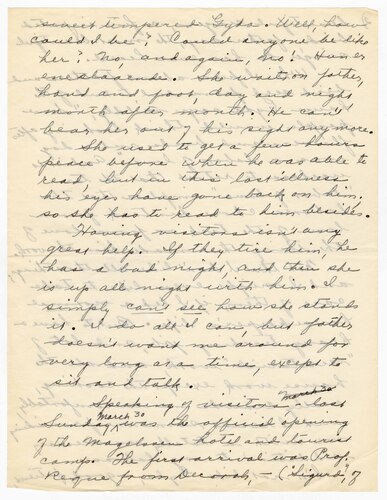 sweet tempered Gyda. Well, how
could I be? Could anyone be like
her? No, and again, no! Hun er
enestaaende. She waits on father,
hand and foot, day and night
month after month. He can't
bear her out of his sight anymore.
She used to get a few hours
peace before when he was able to
read, but in this last illness
his eyes have gone back on him,
so she has to read to him besides.
Having visitors isn't any
great help. If they tire him, he
has a bad night, and then she
is up all night with him. I
simply can't see how she stands
it. I do all I can, but father
doesn't want me around for
very long at a time, except to
sit and talk.
Speaking of visitors – last
March 30
Sunday, was the official opening
March 30
of the hotel and tourist
camp. The first arrival was Prof.
from Decorah, – ("Sigurd", of